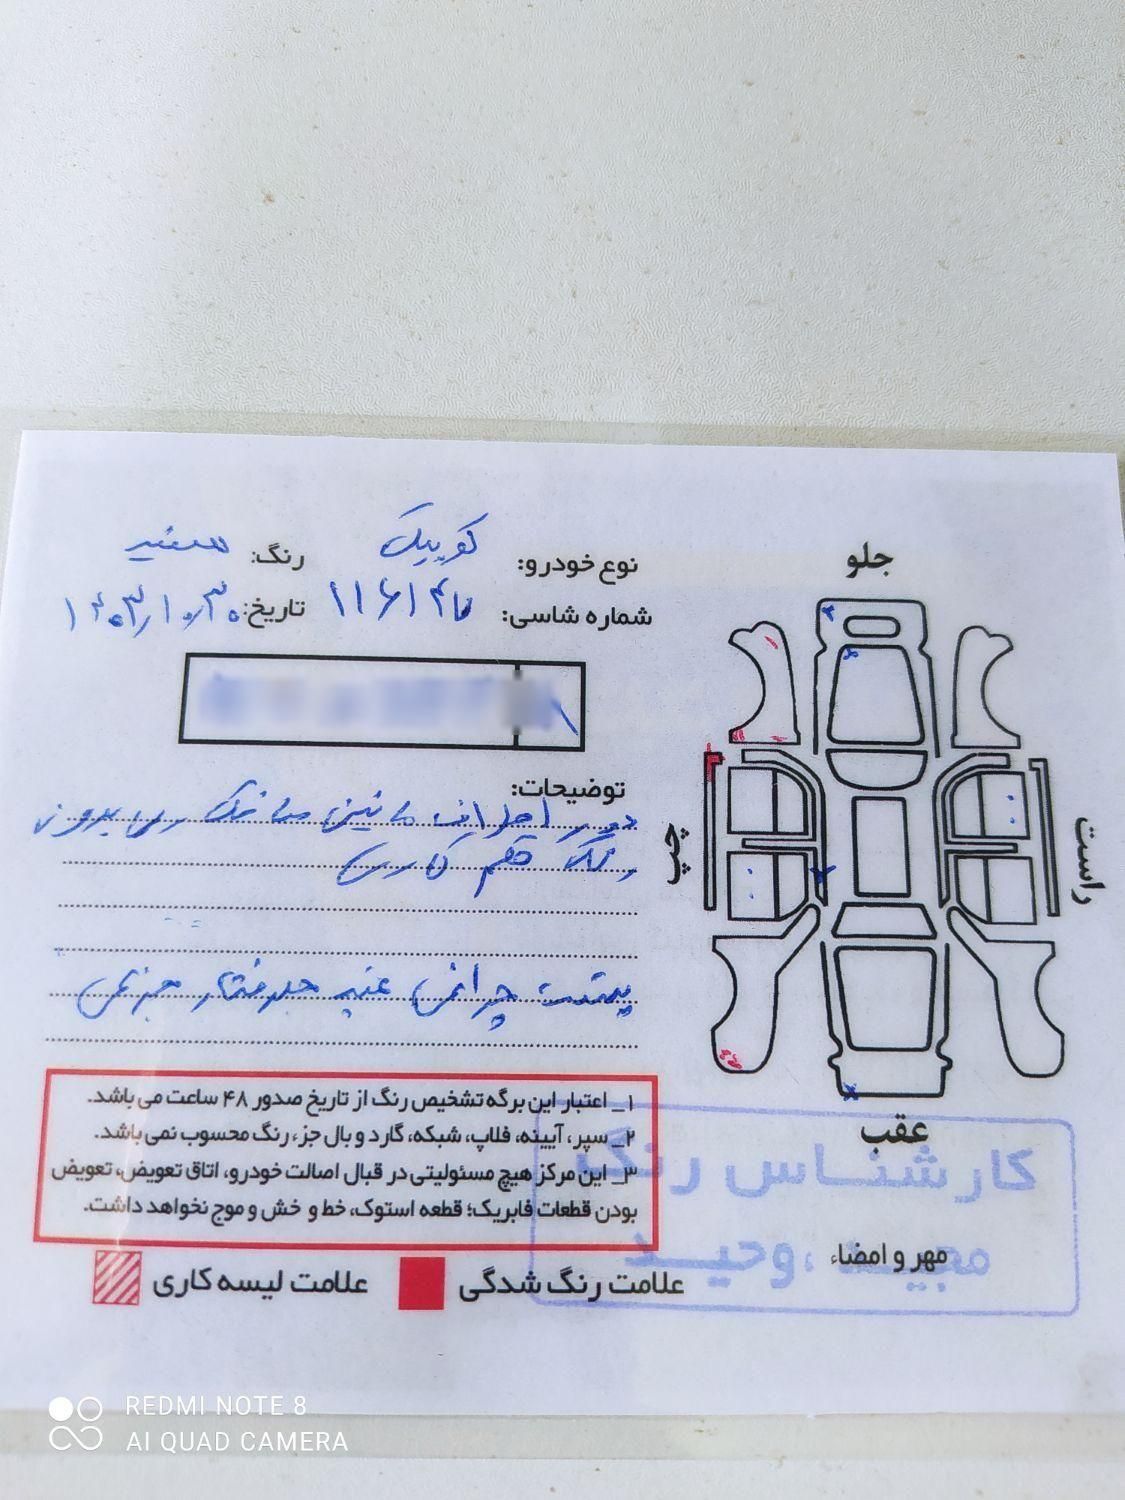 نوع خودرو: کوییک رنگ: سفید
شماره شاسی: ۱۱۶۱۴۷ تاریخ: ۱۴۰۳/۱۰/۳۰
توضیحات:
دور اطراف ماشین
رنگ قلم کاری
پشت چراغ عقب جزئی
۱_ اعتبار این برگه تشخیص رنگ از تاریخ صدور ۴۸ ساعت می باشد.
۲_ سپر، آیینه، فلاپ، شبکه، گارد و بال جز، رنگ محسوب نمی باشد.
۳_ این مرکز هیچ مسئولیتی در قبال اصالت خودرو، اتاق تعویض، تعویض
بودن قطعات فابریک؛ قطعه استوک، خط و خش و موج نخواهد داشت.
علامت رنگ شدگی علامت لیسه کاری
جلو
چپ
راست
عقب
کارشناس رنگ
مهر و امضاء
وحید
REDMI NOTE 8
AI QUAD CAMERA